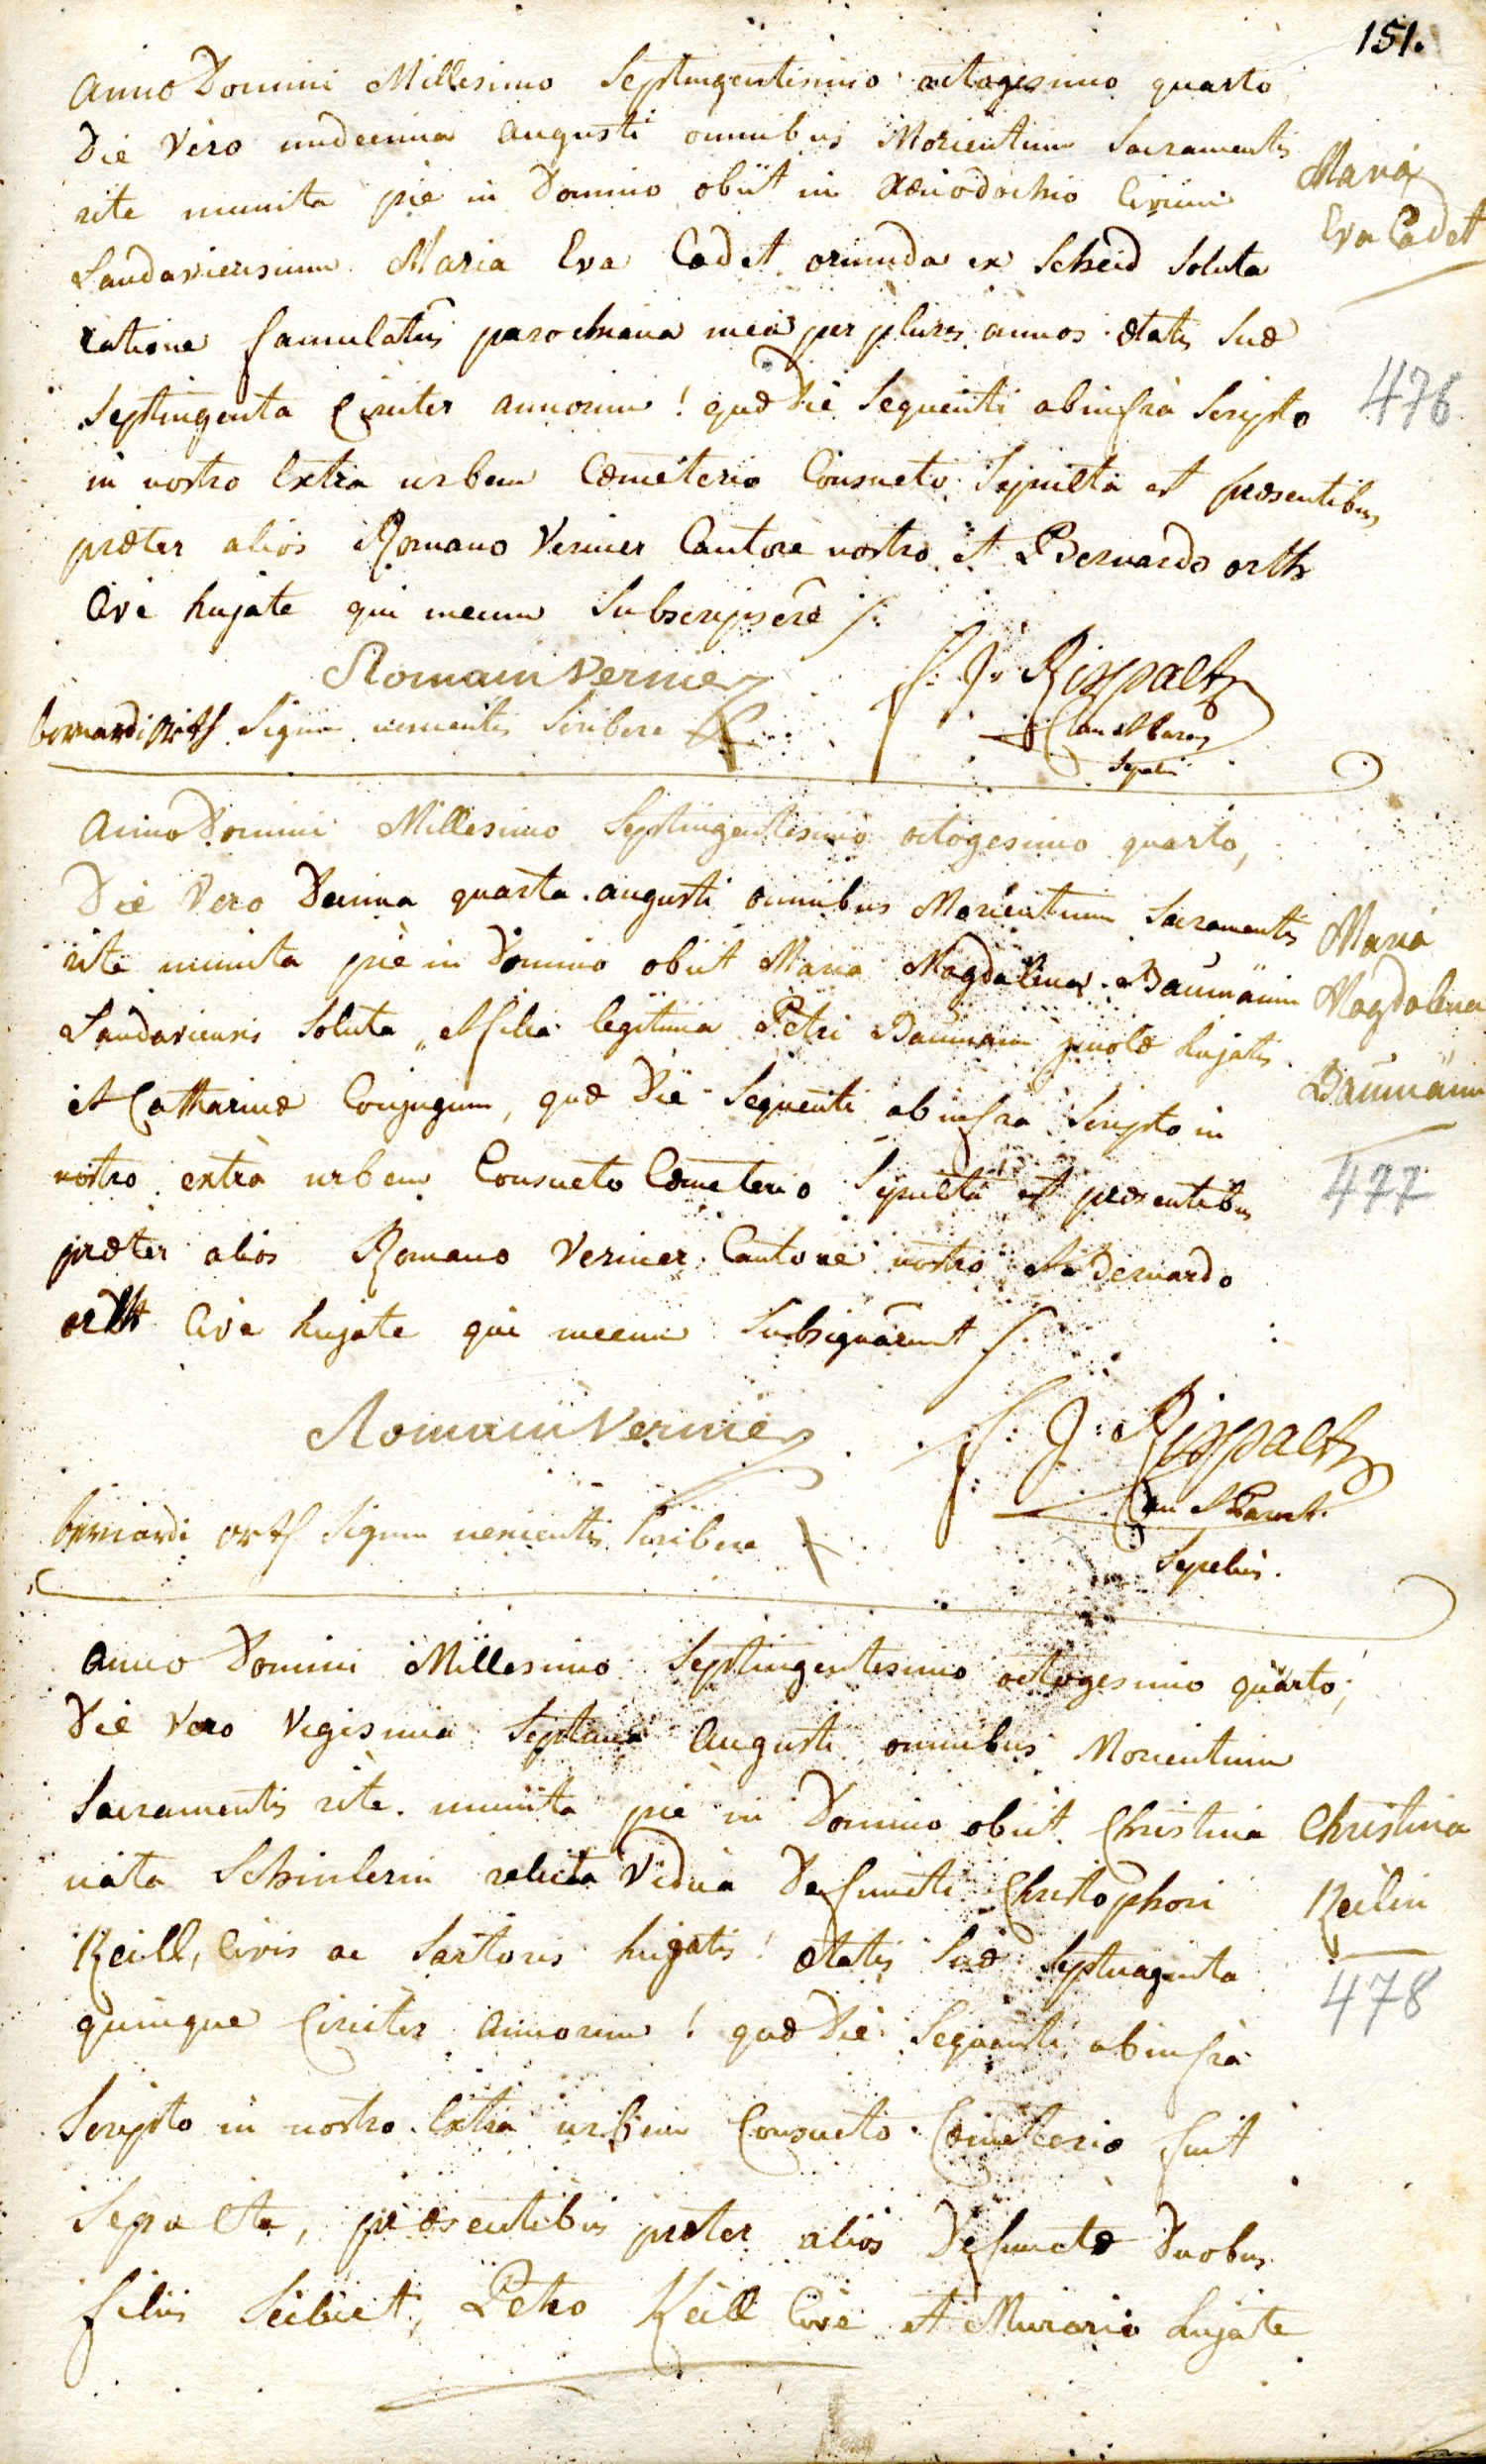 151.
Anno Domini Millesimo Septingentesimo octogesimo quarto
Die Vero undecima Augusti omnibus Morientium Sacramentis
rite munita pie in Domino obiit in Xenodochio Civium
Landaviensium Maria Eva Cadet oriunda ex Scheid Soluta
ratione famulatus parochiana mea per plures annos ætatis Suæ
Septingenta Circiter annorum ! quæ Die Sequenti ab infrà Scripto
in nostro Extra urbem Cœmeterio Consueto Sepulta est præsentibus
præter alios Romano Vernier Cantore nostro et Bernardo orth
Cive hujate qui mecum Subscripsere /:
Maria
Eva Cadet
476
Romain Vernier
F: J: Rispalt
bernardi orth Signum nescientis Scribere
Can et Paroch
Sepelii
Anno Domini Millesimo Septingentesimo octogesimo quarto,
Die Vero Decima quarta augusti omnibus Morientium Sacramentis
rite munita piè in Domino obiit Maria Magdalena Baumänin
Landaviensis Soluta, et filia legitima Petri Baumann hujatis
et Catharinæ Conjugum, quæ Die Sequenti ab infra Scripto in
nostro extrà urbem Consueto Cœmeterio Sepulta est præsentibus
præter alios Romano Vernier Cantore nostro et Bernardo
orth Cive hujate qui mecum Subsignarunt /:
Maria
Magdalena
Baumänin
477
Romain Vernier
F: J: Rispalt
Can et Paroch.
bernardi orth Signum nescientis Scribere
Sepelii.
Anno Domini Millesimo Septingentesimo octogesimo quarto,
Die Vero Vigesima Septima Augusti omnibus Morientium
Sacramentis rite munita pie in Domino obiit Christina
nata Schinlerin relicta Vidua Defuncti Christophori
Keill, Civis ac Sartoris hujatis ! ætatis Suæ Septuaginta
quinque Circiter annorum ! quæ Die Sequenti ab infrà
Scripto in nostro Extra urbem Consueto Cœmeterio fuit
Sepulta, præsentibus præter alios Defunctæ Duobus
filiis Scilicet, Petro Keill Cive et Murario hujate
Christina
Keilin
478